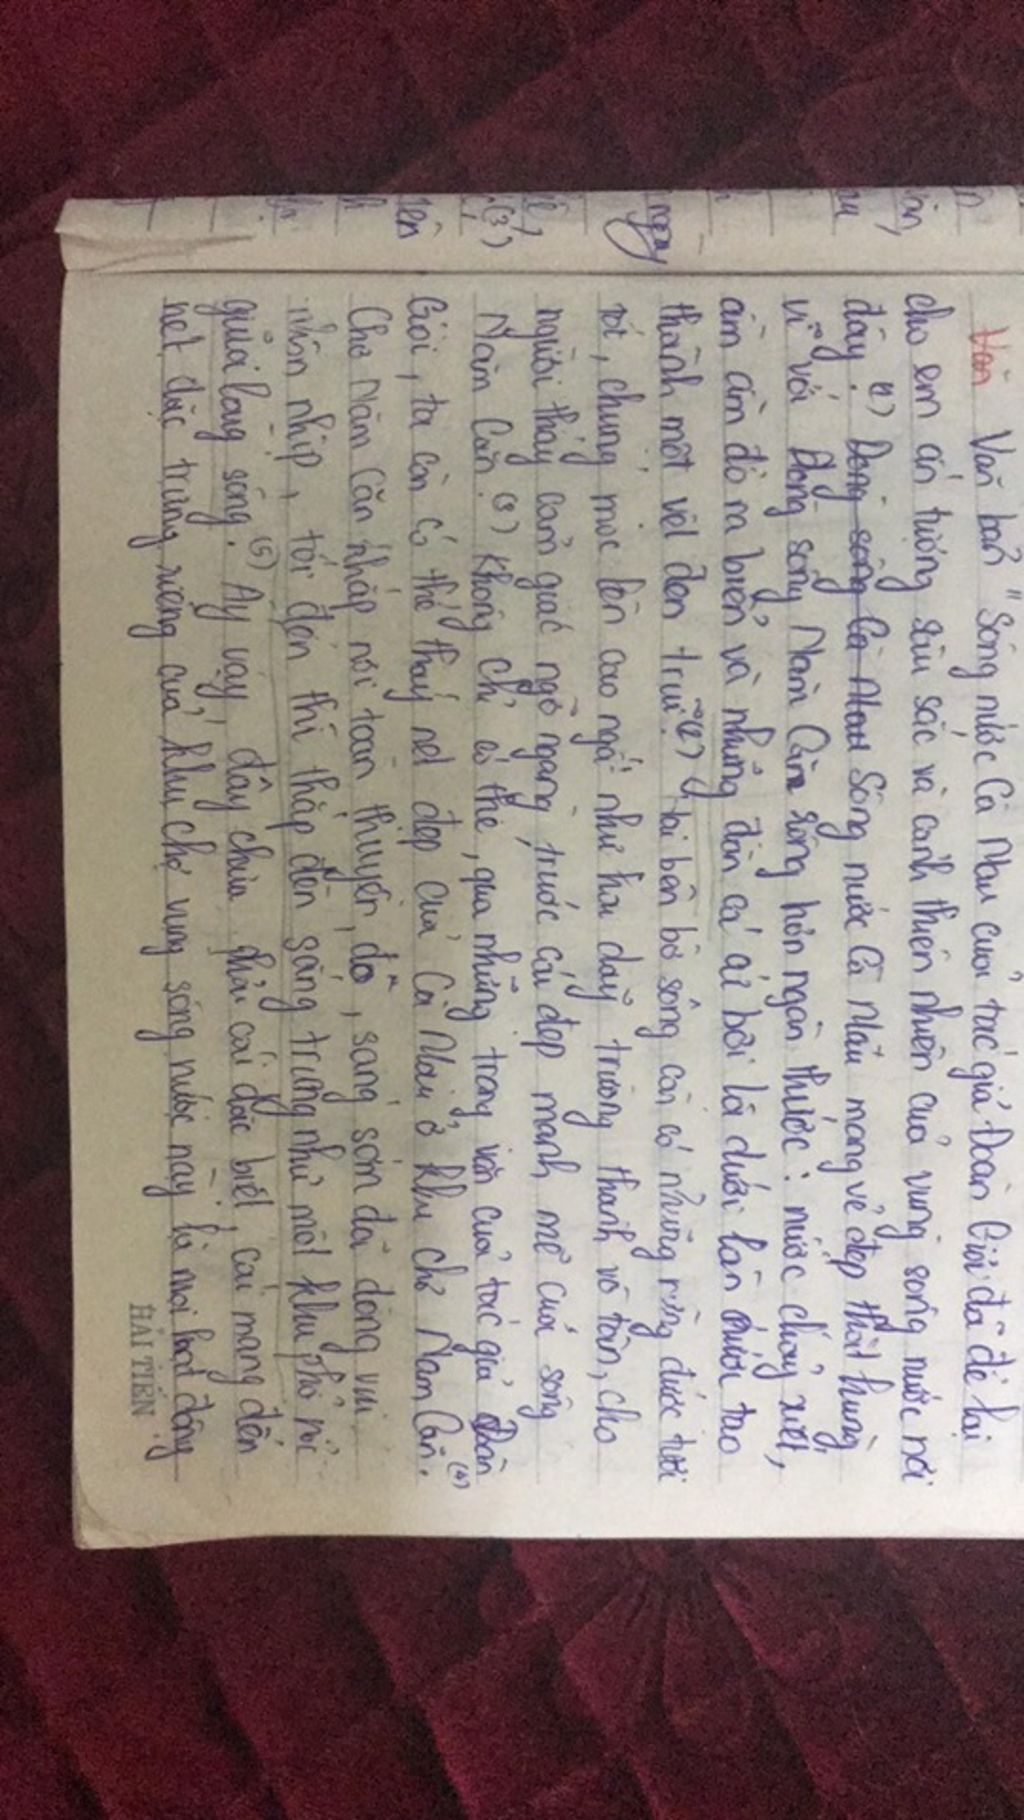 Văn Văn bản "Sông nước Cà Mau của tác giả Đoàn Giỏi đã để lại
cho em ấn tượng sâu sắc và cảnh thiên nhiên của vùng sông nước nơi
đây. (1) Dòng sông Cà Mau Sông nước Cà Mau mang vẻ đẹp thật hùng
vĩ với Dòng sông Năm Căn rộng hơn ngàn thước: nước chảy xiết,
ầm ầm đổ ra biển và những đàn cá ơi bơi lội dưới làn nước tạo
thành một vệt đen trũi. (2) Hai bên bờ sông còn có những rừng đước tươi
tốt, chúng mọc lên cao ngất như hai dãy trường thành vô tận, cho
người thấy cảm giác ngỡ ngàng trước cái đẹp mạnh mẽ của sông
Năm Căn. (3) Không chỉ có thế, qua những trang văn của tác giả Đoàn
Giỏi, ta còn có thể thấy nét đẹp của Cà Mau ở khu chợ Năm Căn. (4)
Chợ Năm Căn nhấp nơi toàn thuyền, đò, sáng sớm đã đông vui
nhộn nhịp, tối đến thì thắp đèn sáng trưng như một khu phố nổi
giữa lòng sông. (5) Ấy vậy, đây chưa phải cái đặc biệt, cái mang đến
nét đặc trưng riêng của khu chợ vùng sông nước này là mọi hoạt động
HẢI TIẾN
ngay
(3)
tên